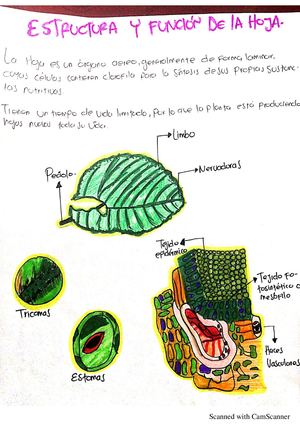 ESTRUCTURA Y FUNCIÓN DE LA HOJA.
La Hoja es un órgano aereo, generalmente de forma laminar,
cuyas células contienen clorofila para la síntesis de sus propias sustan-
cias nutritivas.
Tienen un tiempo de vida limitado, por lo que la planta está produciendo
hojas nuevas toda su vida.
Limbo
Pecíolo.
Nervaduras
Tejido
epidérmico
Tejido Fo-
tosintético o
mesófilo
Tricomas
Haces
Vasculares
Estomas
Scanned with CamScanner